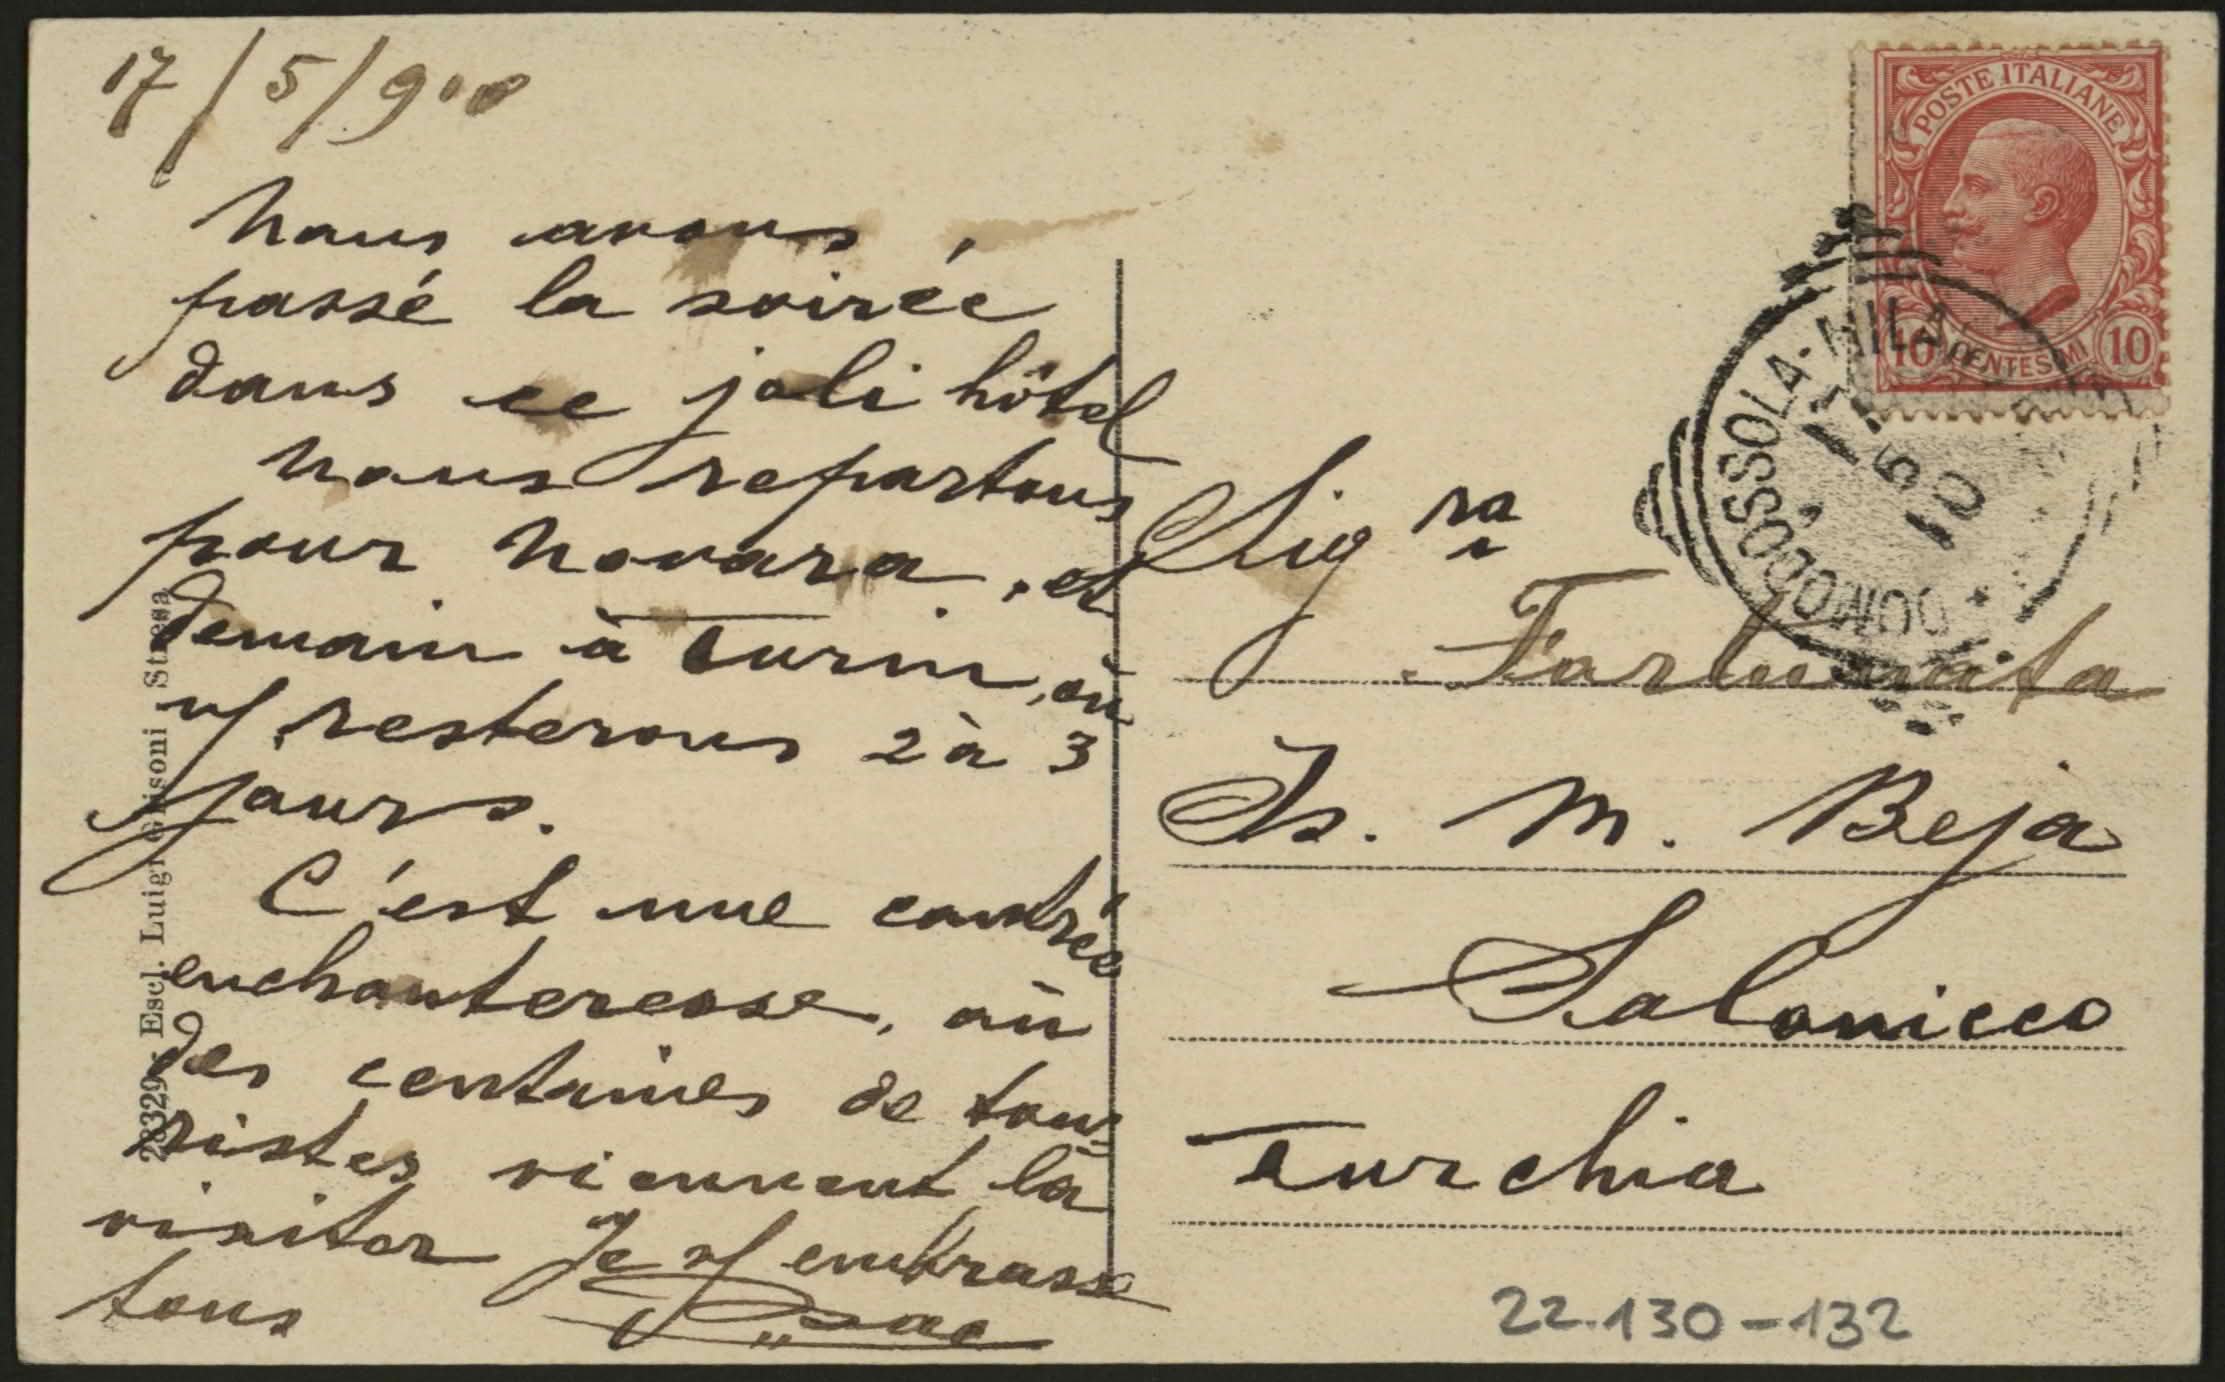 17/5/910
Nous avons
passé la soirée
dans ce joli hôtel
nous repartons
pour Novara, et
demain à Turin, où
n/ resterons 2 à 3
jours.
C'est une contrée
enchanteresse, où
des centaines de tou-
ristes viennent la
visiter Je v/ embrasse
tous
Isac
28329 - Escl. Luigi Ghisoni Stresa
POSTE ITALIANE
10 CENTESIMI 10
DOMODOSSOLA-MILA
17 5 10
Sigra
Fortunata
Is. M. Beja
Salonicco
Turchia
22.130-132